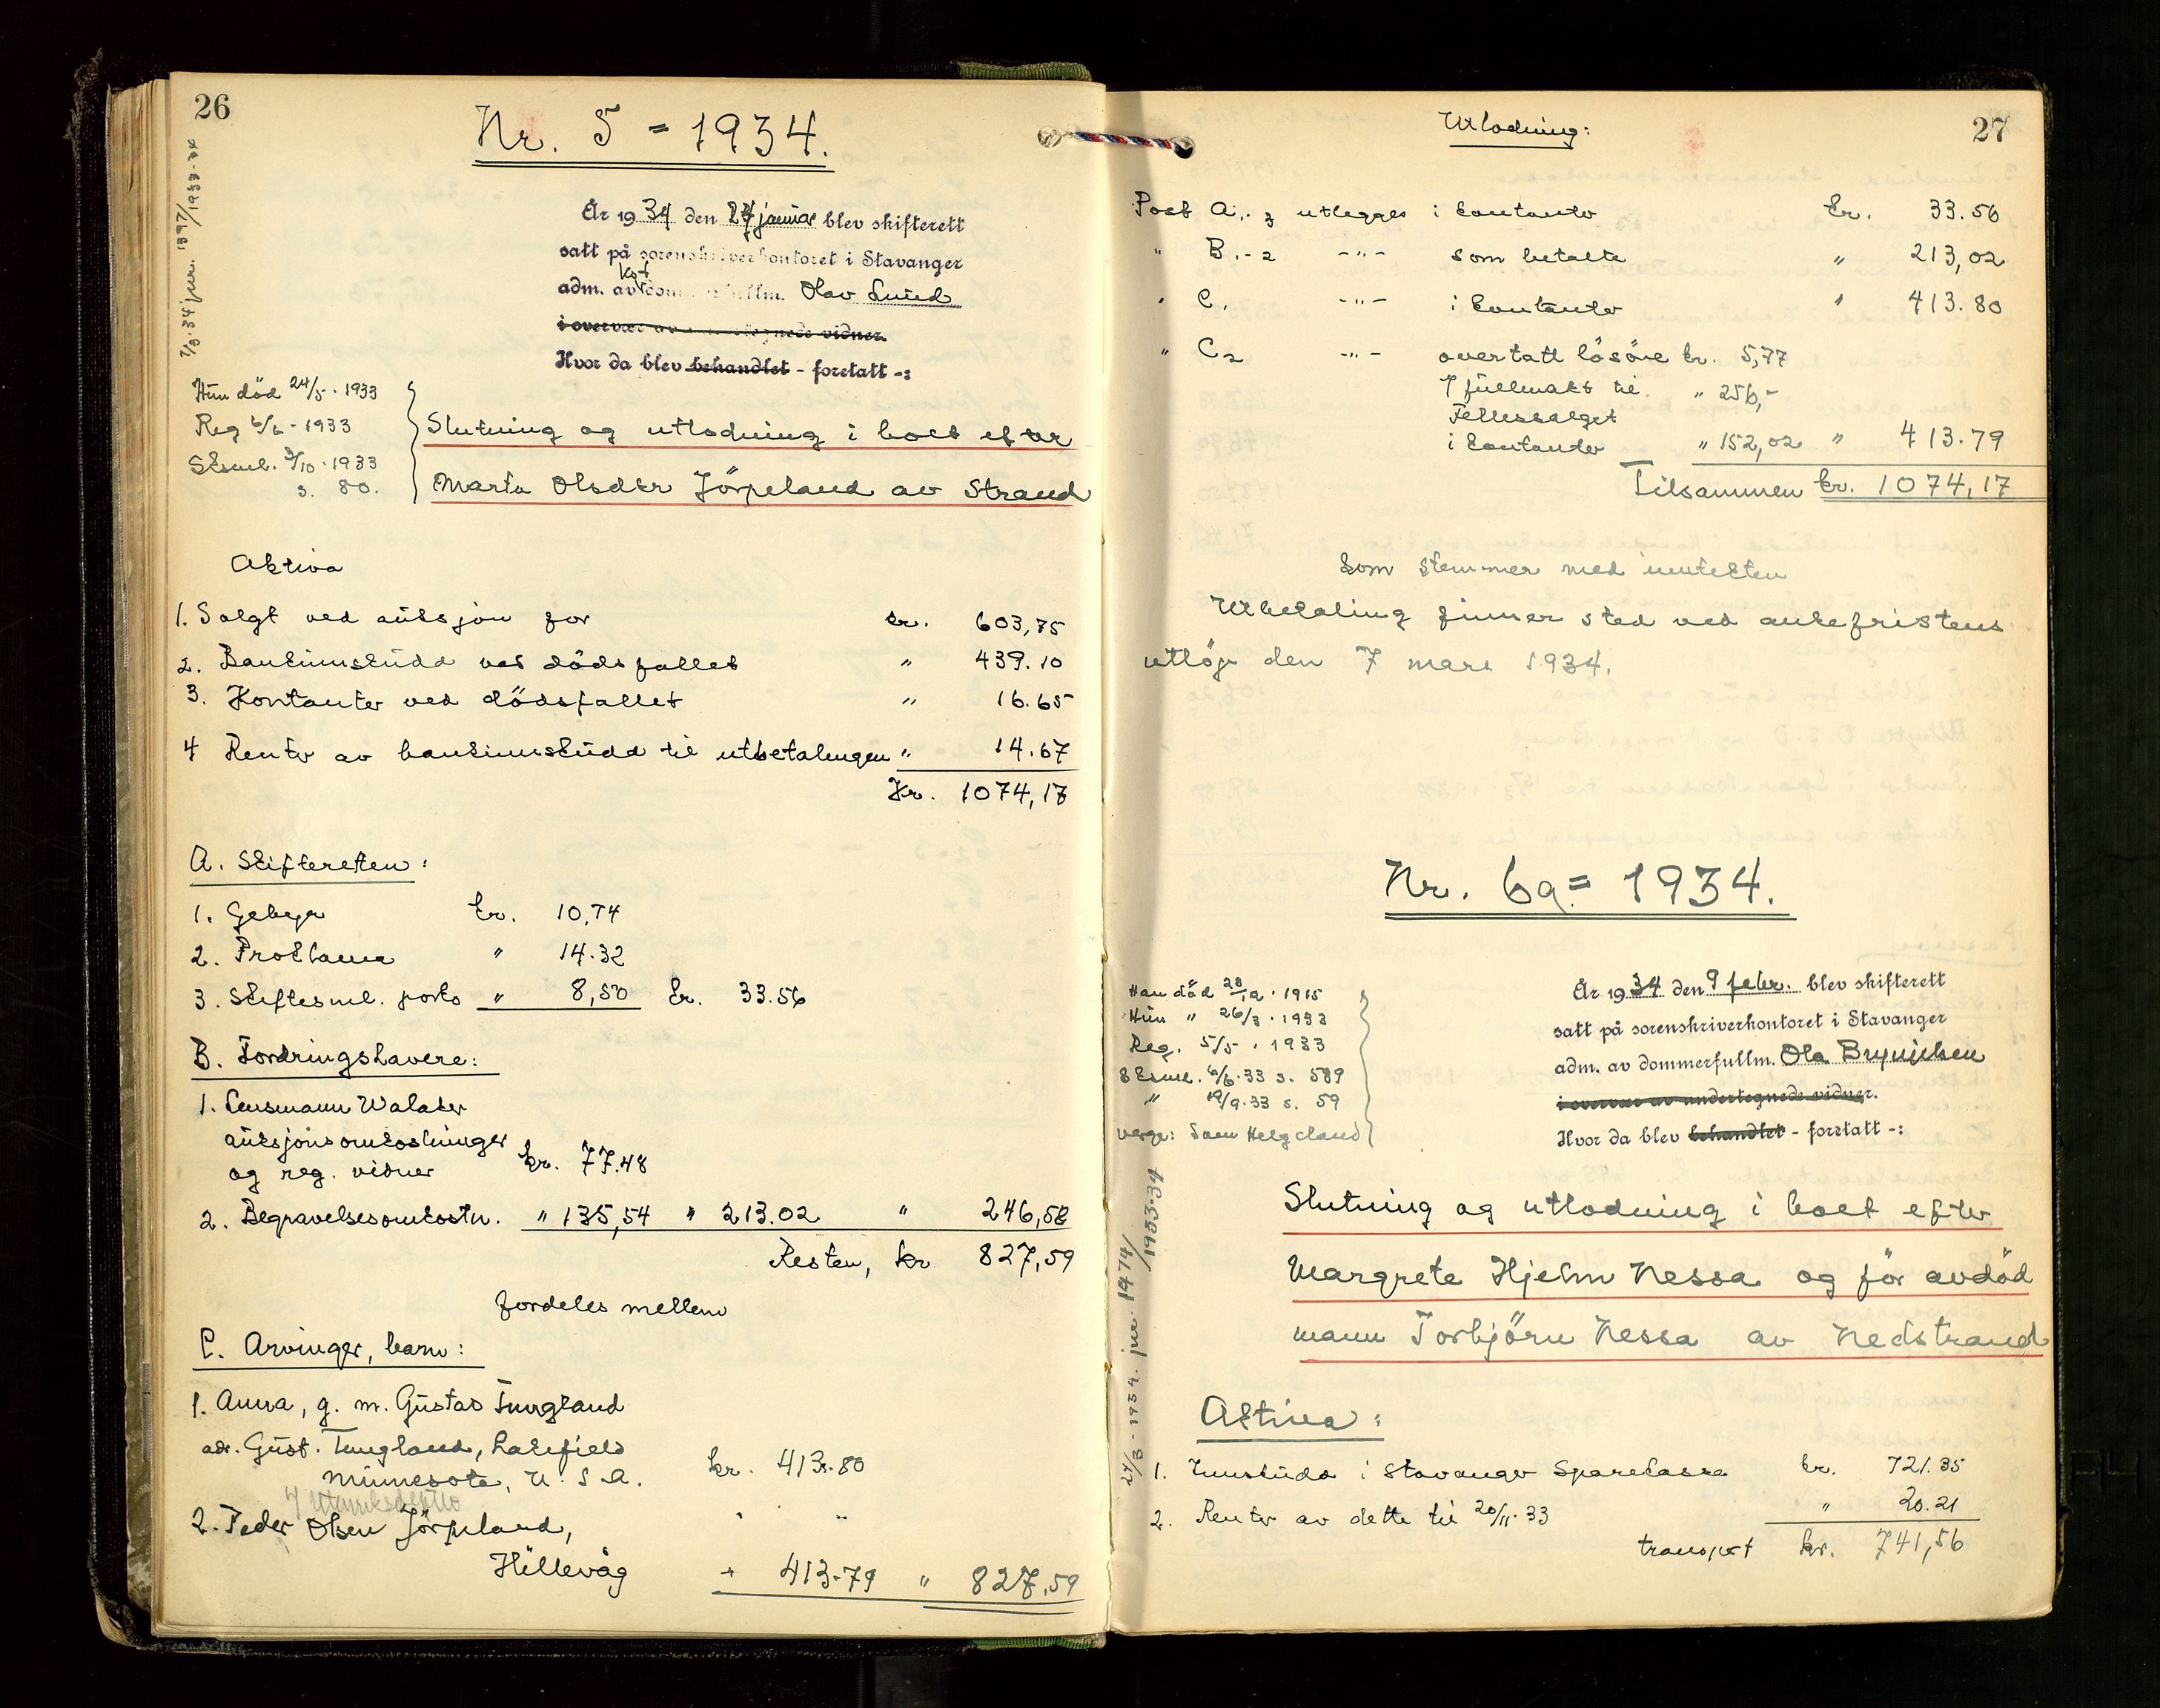 26
Nr. 5 = 1934.
7/3.34 jnr. 1397/1933-34
År 1934 den 27 januar blev skifterett
satt på sorenskriverkontoret i Stavanger
kst
adm. av dommerfullm. Olav Lund
i overvær av undertegnede vidner.
Hvor da blev behandlet - foretatt -:
Hun död 24/5. 1933
Reg 6/6 - 1933
Sksml. 3/10. 1933
s. 80.
Slutning og utlodning i boet efter
Marta Olsdtr Jörpeland av Strand
Aktiva
1. Solgt ved auksjon for kr. 603,75
2. Bankinnskudd ved dödsfallet " 439.10
3. Kontanter ved dödsfallet " 16.65
4 Renter av bankinnskudd til utbetalingen " 14.67
Kr. 1074,17
A. Skifteretten:
1. Gebyr kr. 10,74
2. Proklama " 14.32
3. Skiftesml. porto " 8,50 kr. 33.56
B. Fordringshavere:
1. Lensmann Walaker
auksjonsomkostninger
og reg. vidner kr. 77.48
2. Begravelsesomkostn. " 135,54 " 213.02 " 246,58
Resten, kr 827,59
fordeles mellem
C. Arvinger, barn:
1. Anna, g. m. Gustav Tungland
adr. Gust. Tungland, Lakefield
Minnesota, U.S.A. kr. 413.80
2. Peder Olsen Jörpeland,
Hillevåg " 413.79 " 827,59
27
Utlodning:
Post A 1.-3 utlegges i kontanter kr. 33.56
" B 1.-2 -"- som betalte " 213,02
" C 1. -"- i kontanter " 413.80
" C 2 -"- overtatt lösöre kr. 5,77
fullmakt til " 256,-
Fellessalget
i kontanter " 152,02 " 413.79
Tilsammen kr. 1074,17
som stemmer med inntekten
Utbetaling finner sted ved ankefristens
utlöp den 7 mars 1934.
Nr. 6a = 1934.
27/3-1934. jnr. 1474/1933-34
Han död 28/12. 1915
Hun " 26/3. 1933
Reg. 5/5. 1933
Sksml. 6/6.33 s. 589
" 19/9.33 s. 59
verge: Sven Helgeland
År 1934 den 9 febr. blev skifterett
satt på sorenskriverkontoret i Stavanger
adm. av dommerfullm. Ola Brynjelsen
i overvær av undertegnede vidner.
Hvor da blev behandlet - foretatt -:
Slutning og utlodning i boet efter
Margrete Hjelm Nessa og för avdöd
mann Torbjörn Nessa av Nedstrand
Aktiva:
1. Innskudd i Stavanger Sparekasse kr. 721.35
2. Renter av dette til 20/11.33 " 20.21
transport kr. 741,56